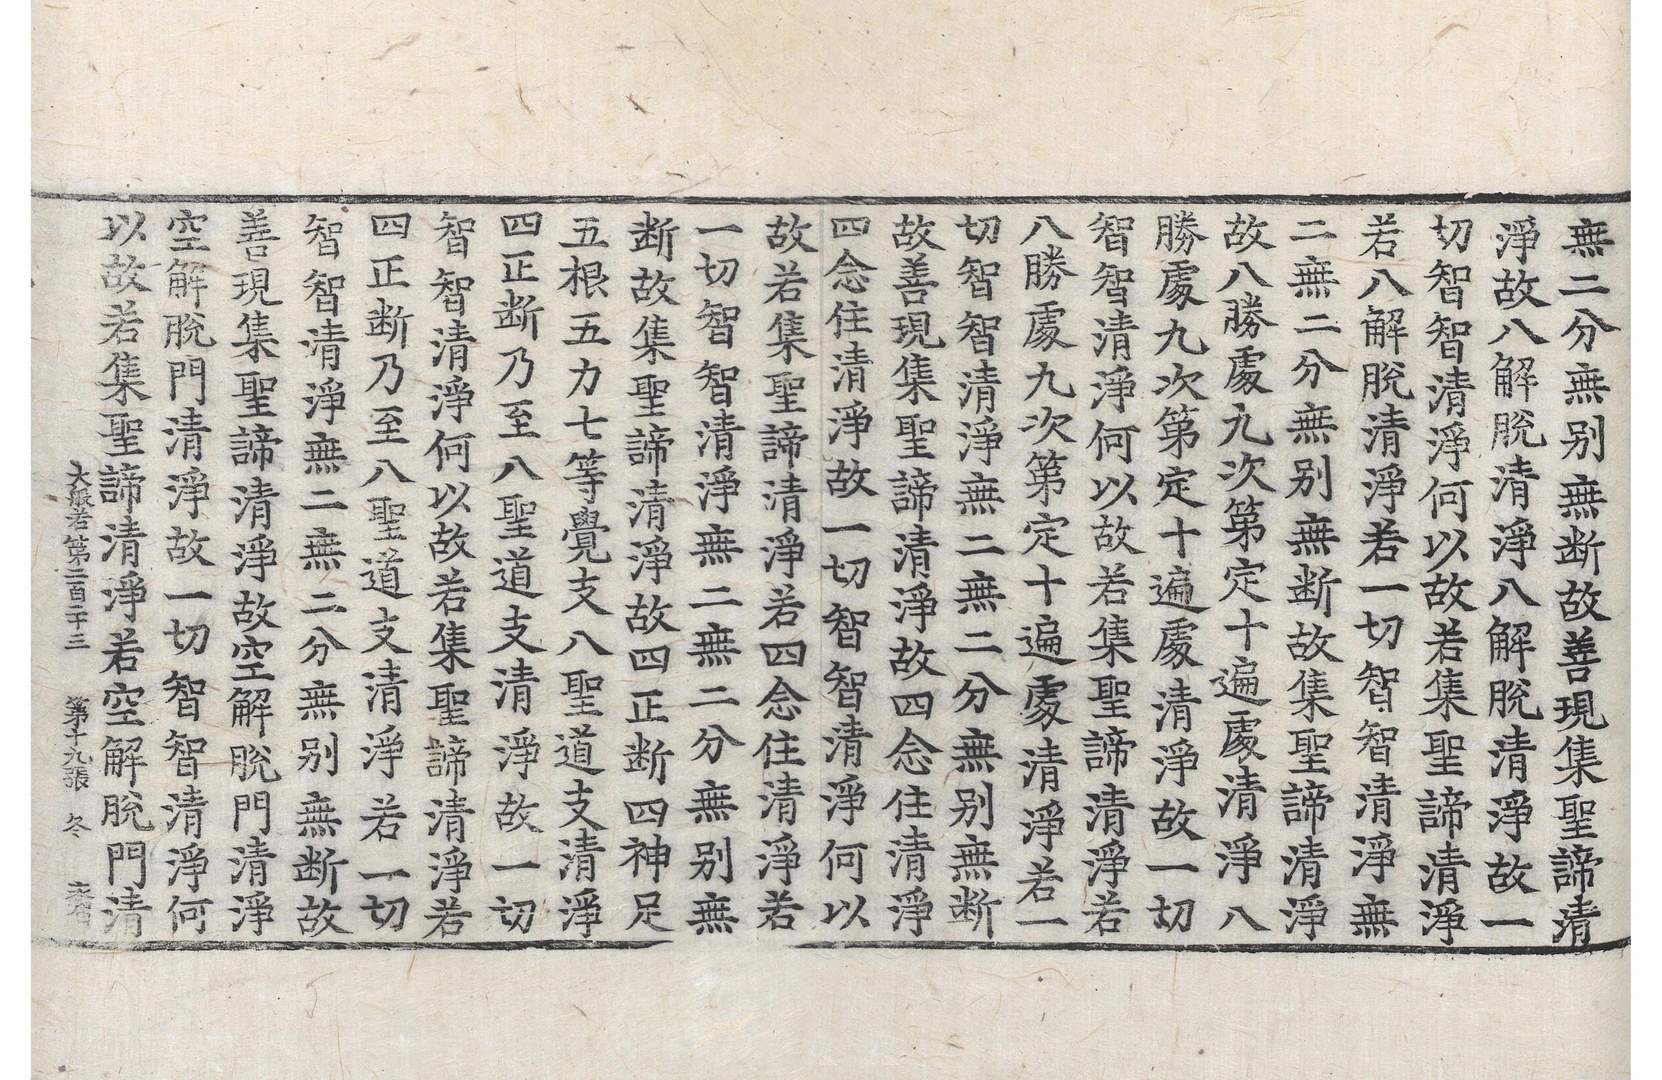 無二分無别無断故善現集聖諦清
淨故八解脫清淨八解脫清淨故一
切智智清淨何以故若集聖諦清淨
若八解脫清淨若一切智智清淨無
二無二分無别無断故集聖諦清淨
故八勝處九次第定十遍處清淨八
勝處九次第定十遍處清淨故一切
智智清淨何以故若集聖諦清淨若
八勝處九次第定十遍處清淨若一
切智智清淨無二無二分無别無断
故善現集聖諦清淨故四念住清淨
四念住清淨故一切智智清淨何以
故若集聖諦清淨若四念住清淨若
一切智智清淨無二無二分無别無
断故集聖諦清淨故四正断四神足
五根五力七等覺支八聖道支清淨
四正断乃至八聖道支清淨故一切
智智清淨何以故若集聖諦清淨若
四正断乃至八聖道支清淨若一切
智智清淨無二無二分無别無断故
善現集聖諦清淨故空解脫門清淨
空解脫門清淨故一切智智清淨何
以故若集聖諦清淨若空解脫門清
大般若第二百二十三 第十九張 冬